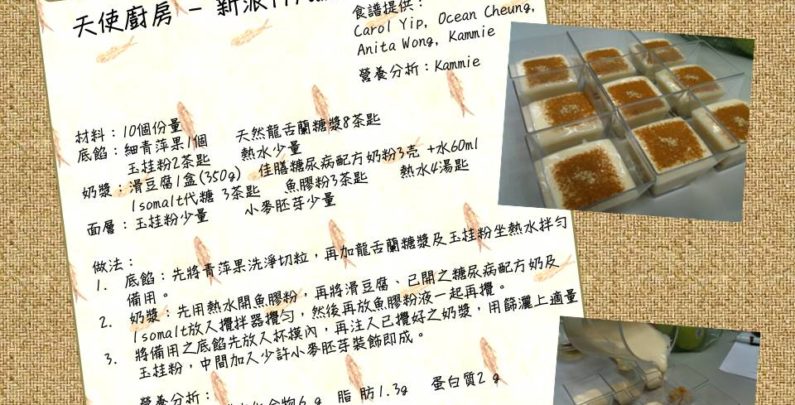 天使廚房 - 新派
食譜提供:
Carol Yip, Ocean Cheung,
Anita Wong, Kammie
營養分析:Kammie
材料:10個份量
底餡:細青萍果1個 天然龍舌蘭糖漿8茶匙
玉桂粉2茶匙 熱水少量
奶漿:滑豆腐1盒(350g) 佳膳糖尿病配方奶粉3壳 +水60ml
Isomalt代糖 3茶匙 魚膠粉3茶匙 熱水4湯匙
面層:玉桂粉少量 小麥胚芽少量
做法:
1. 底餡:先將青萍果洗淨切粒,再加龍舌蘭糖漿及玉桂粉坐熱水拌勻
備用。
2. 奶漿:先用熱水開魚膠粉,再將滑豆腐、已開之糖尿病配方奶及
Isomalt放入攪拌器攪勻,然後再放魚膠粉液一起再攪。
3. 將備用之底餡先放入杯模內,再注入已攪好之奶漿,用篩灑上適量
玉桂粉,中間加入少許小麥胚芽裝飾即成。
營養分析:
化合物6 g 脂 肪1.3g 蛋白質2 g